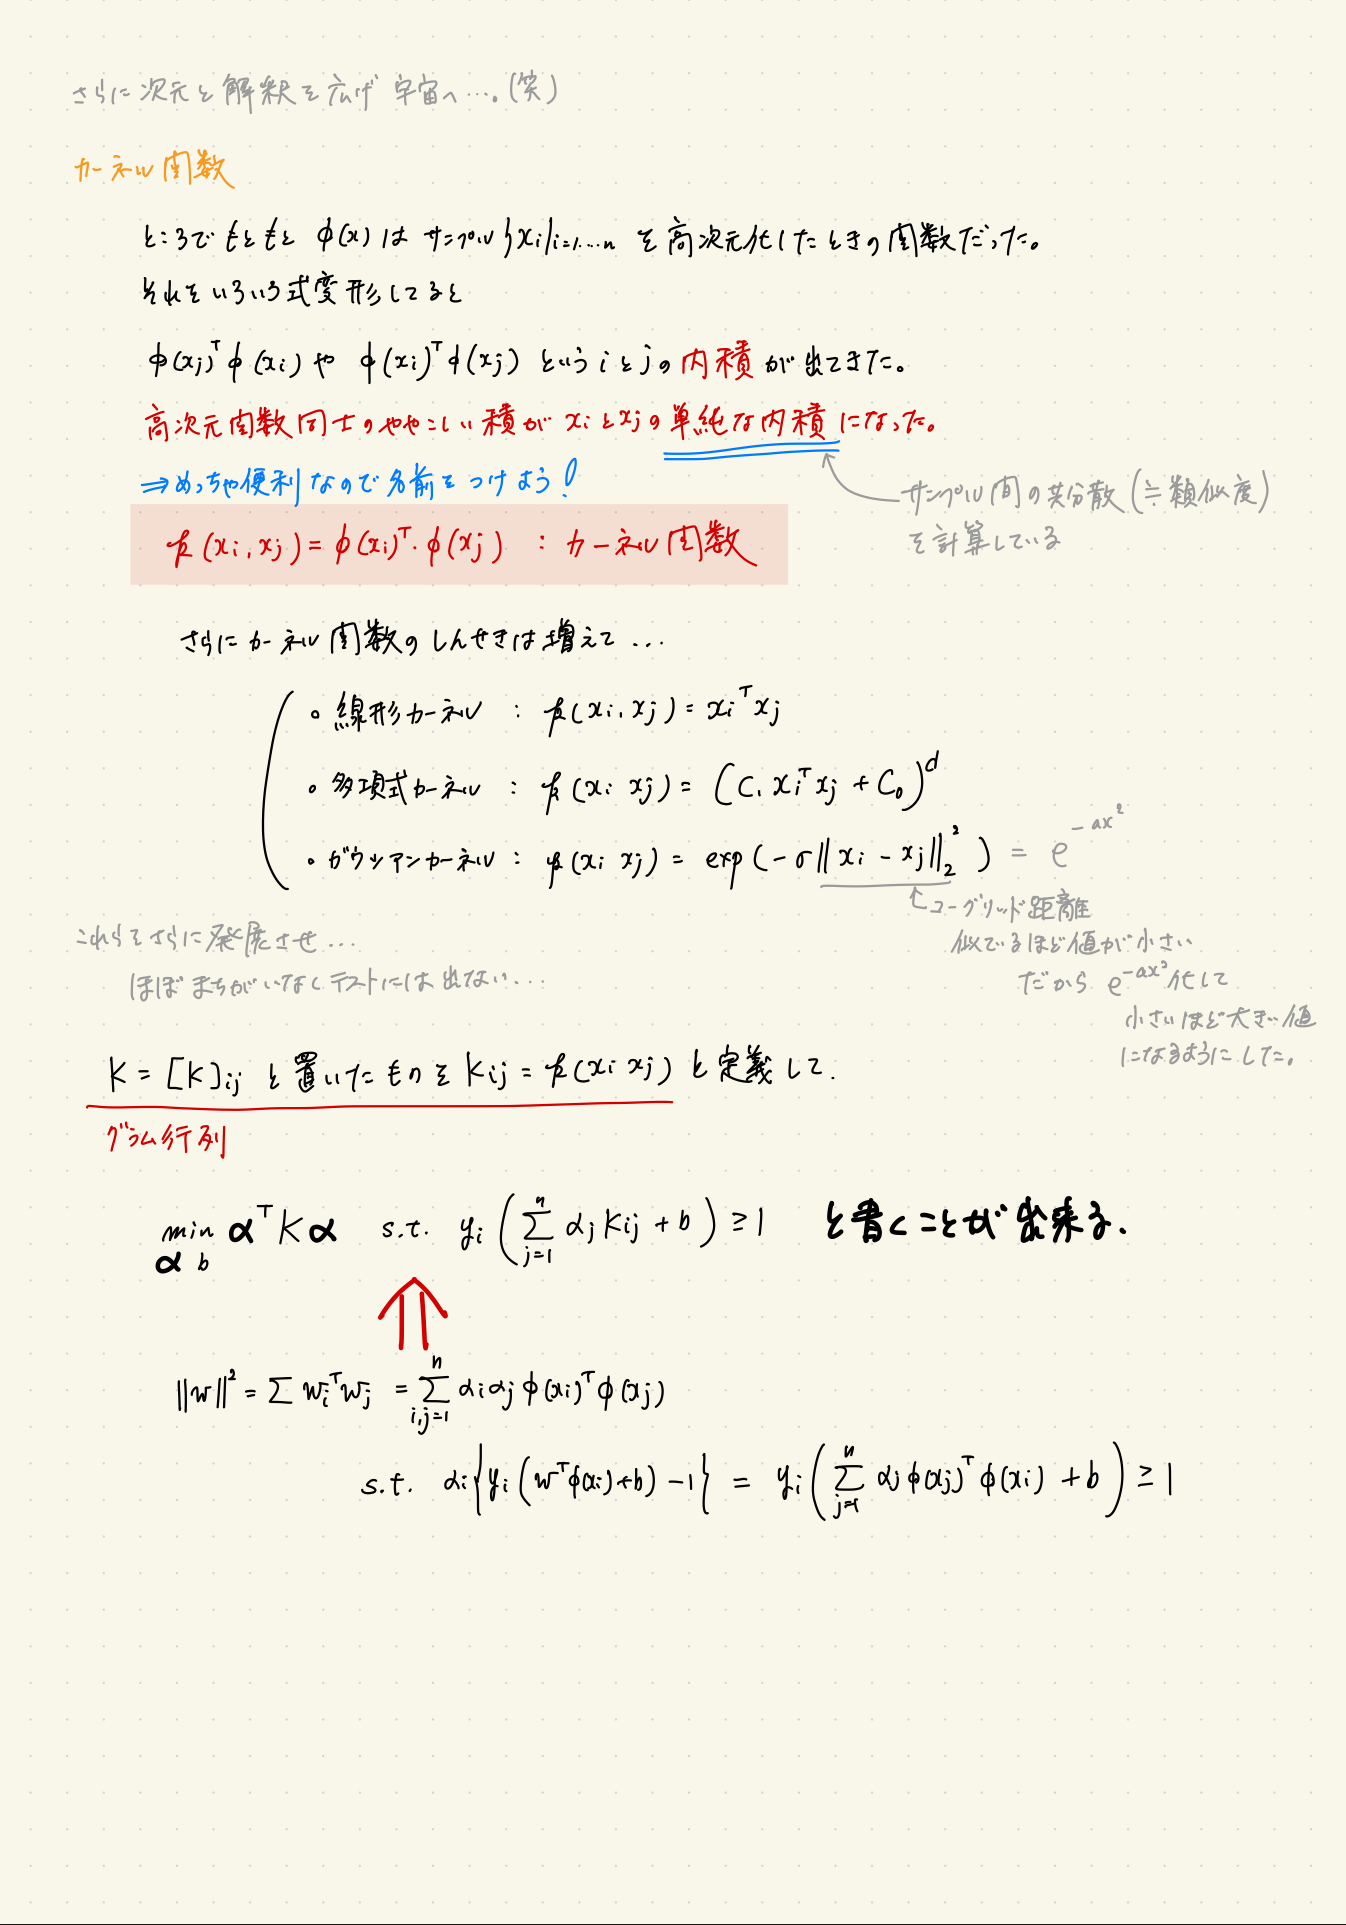 さらに次元と解釈を広げ 宇宙へ…。(笑)
カーネル関数
ところでもともと φ(x) は サンプル{xi}i=1.…n を高次元化したときの関数だった。
それをいろいろ式変形してると
φ(xj)ᵀφ(xi) や φ(xi)ᵀφ(xj) という i と j の内積が出てきた。
高次元関数同士のややこしい積が xi と xj の単純な内積になった。
⇒めっちゃ便利なので名前をつけよう!
サンプル間の共分散(≒類似度)
を計算している
k(xi, xj) = φ(xi)ᵀ・φ(xj) : カーネル関数
さらにカーネル関数のしんせきは増えて…
。線形カーネル : k(xi, xj) = xiᵀxj
。多項式カーネル : k(xi xj) = (C₁ xiᵀxj + C₀)ᵈ
。ガウシアンカーネル : k(xi xj) = exp(-σ‖xi - xj‖₂²) = e^{-ax²}
ユーグリッド距離
似ているほど値が小さい
だから e^{-ax²}化して
小さいほど大きい値
になるようにした。
これらをさらに発展させ…
ほぼまちがいなくテストには出ない…
K = [K]ij と置いたものを Kij = k(xi xj) と定義して.
グラム行列
min α b αᵀKα s.t. yi(∑_{j=1}^{n} αj Kij + b) ≥ 1 と書くことが出来る.
‖w‖² = ∑ wiᵀwj = ∑_{i,j=1}^{n} αiαjφ(xi)ᵀφ(xj)
s.t. αi{yi(wᵀφ(xi)+b) -1} = yi(∑_{j=1}^{n} αjφ(xj)ᵀφ(xi) + b) ≥ 1